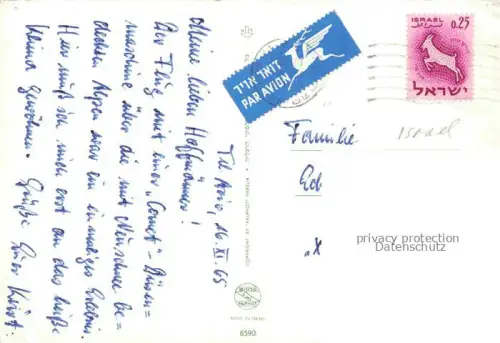 Tel Aviv, 16.XI.65
Meine lieben Hoffmänner!
Der Flug mit einer „Comet"-Düsen=
maschine über die mit Neuschnee be=
deckten Alpen war ein einmaliges Erlebnis.
Hier muß ich mich erst an das heiße
Klima gewöhnen. Grüße Euer Kurt.
דואר אויר
PAR AVION
ISRAEL 0.25
ישראל
Familie
Israel
Ed
privacy protection
Datenschutz
MADE IN ISRAEL
6590